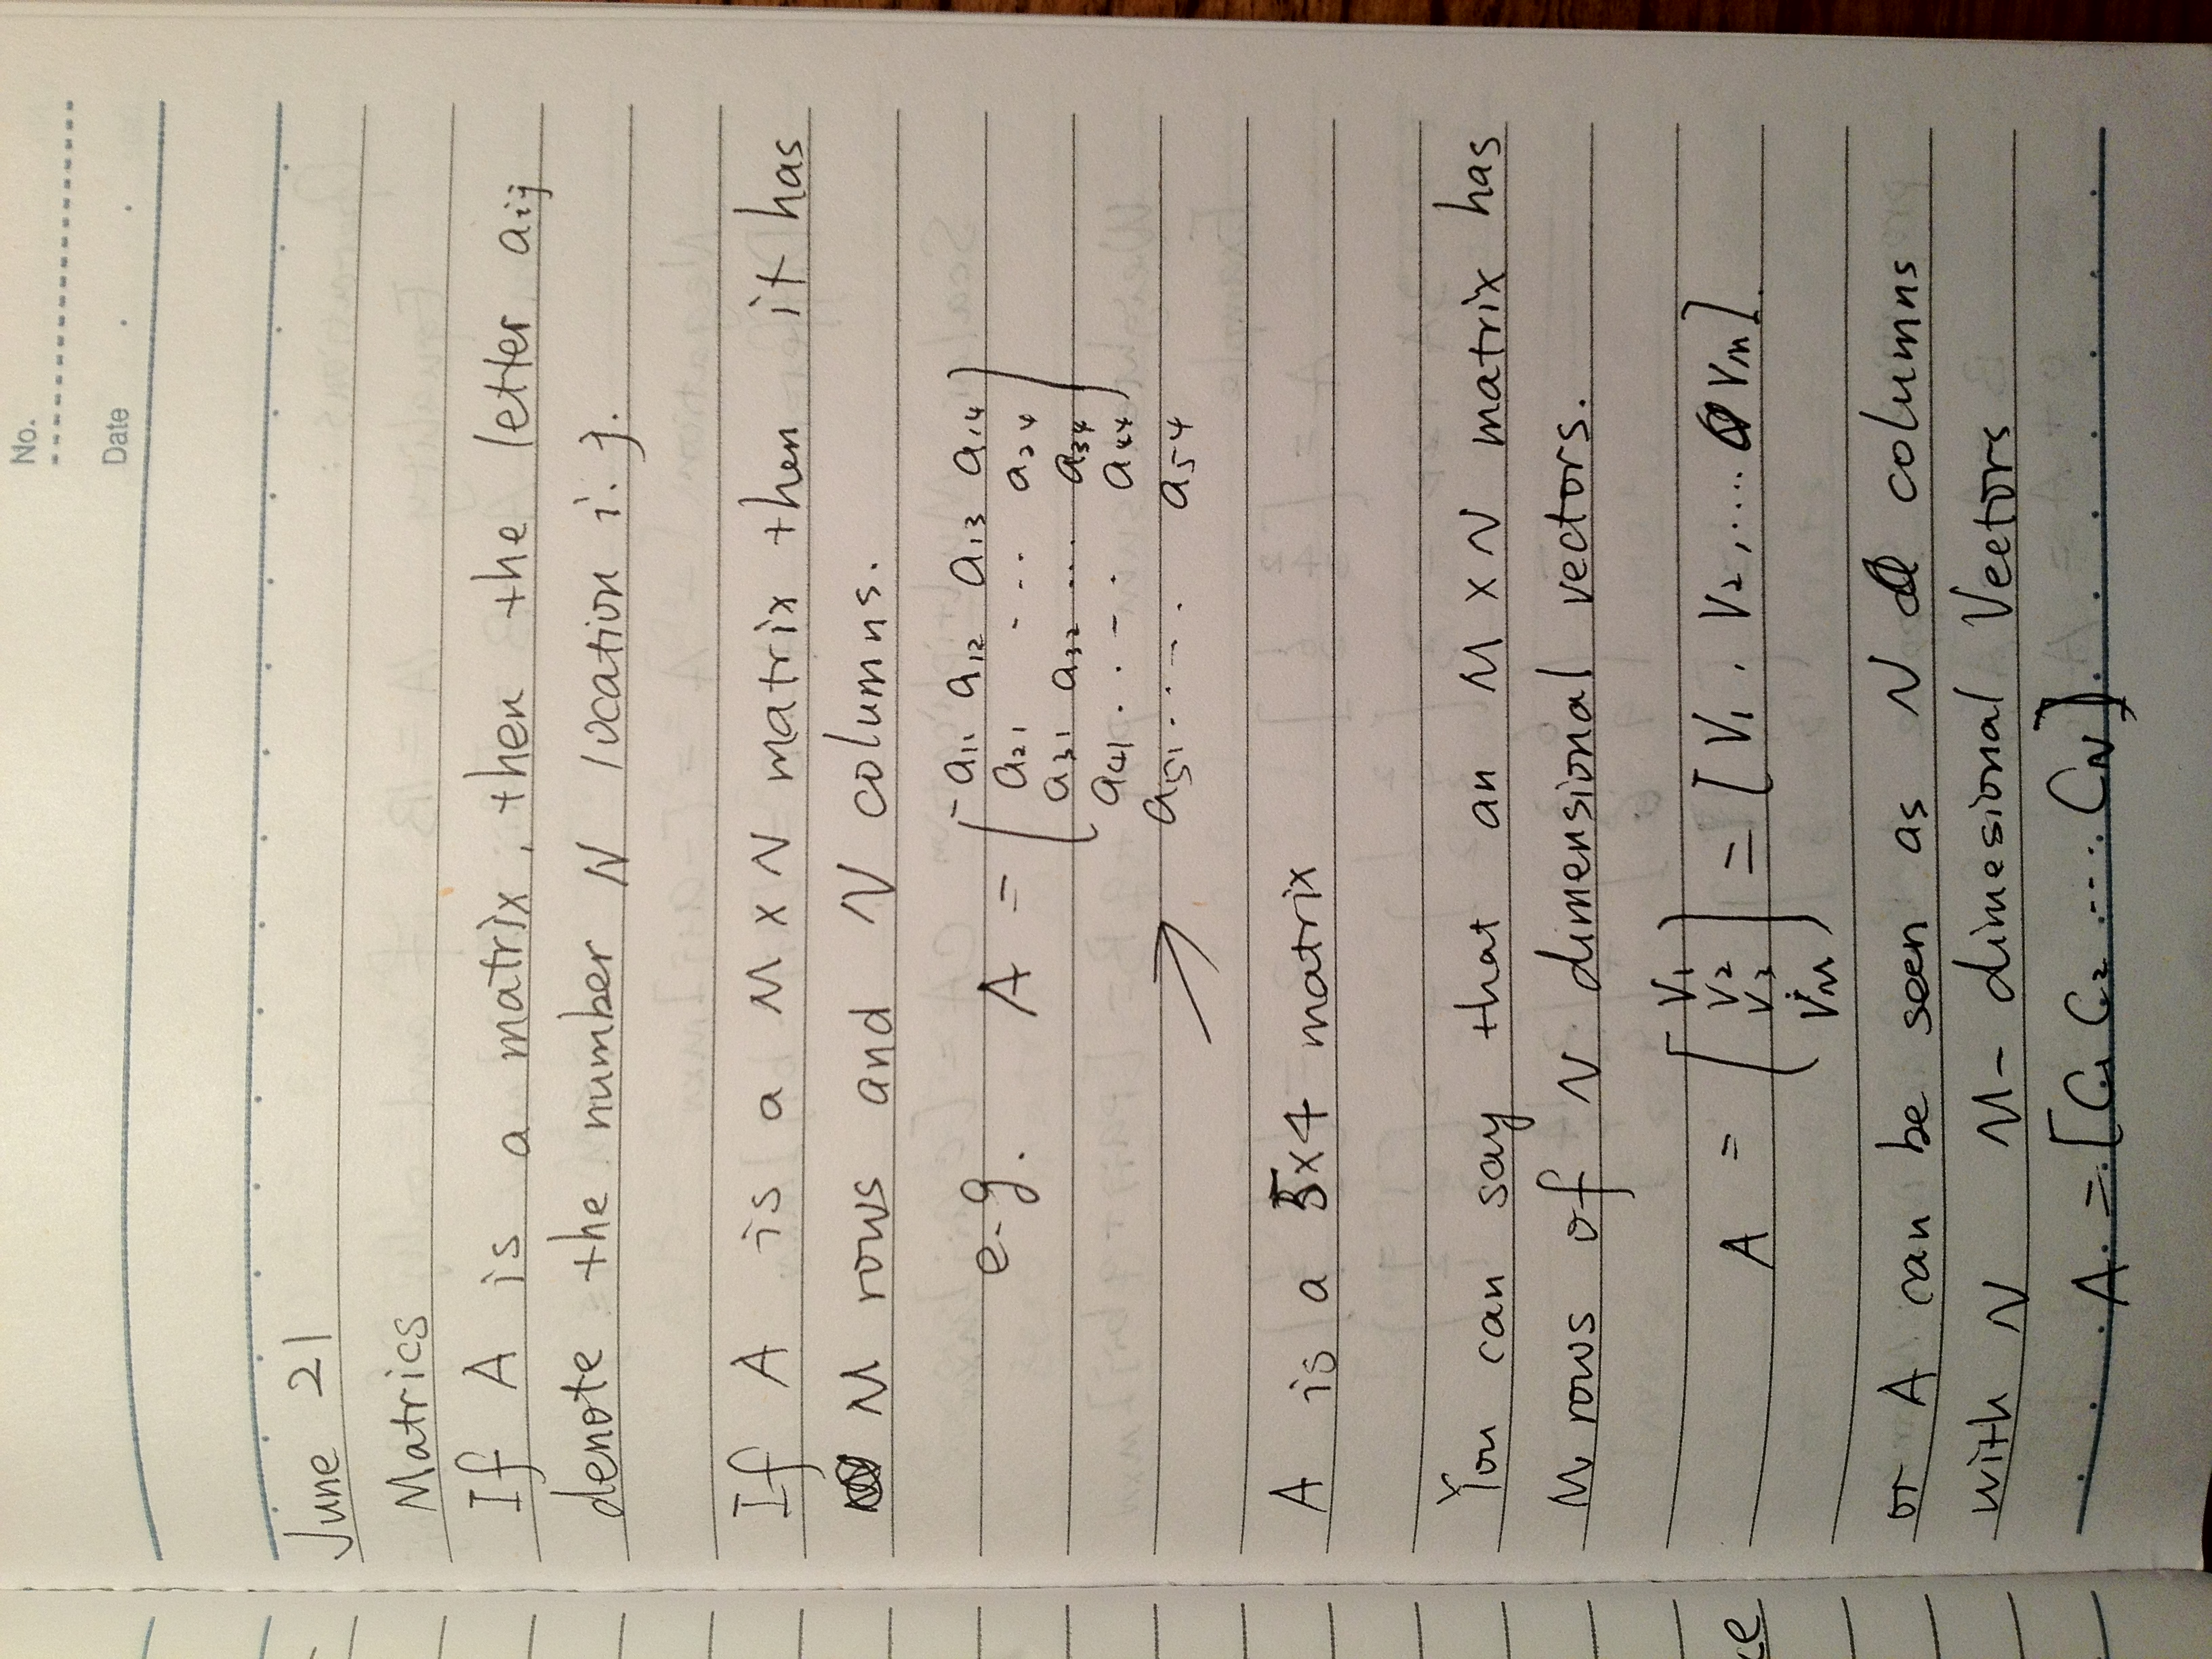 No.
Date
June 21
Matrics
If A is a matrix, then the letter aij
denote the number N location i. j.
If A is a M x N matrix then it has
M rows and N columns.
e.g. A = [a11 a12 a13 a14
a21 - ... a24
a31 a32 ... a34
a41 ... - . a44]
a51 ... . a54
A is a 5x4 matrix
You can say that an M x N matrix has
M rows of N dimensional vectors.
A = [V1 V2 V3 : VM] = [V1, V2, .... Vm].
or A can be seen as N columns
with N M-dimesional Vectors
A = [C1 C2 ---.. CN]